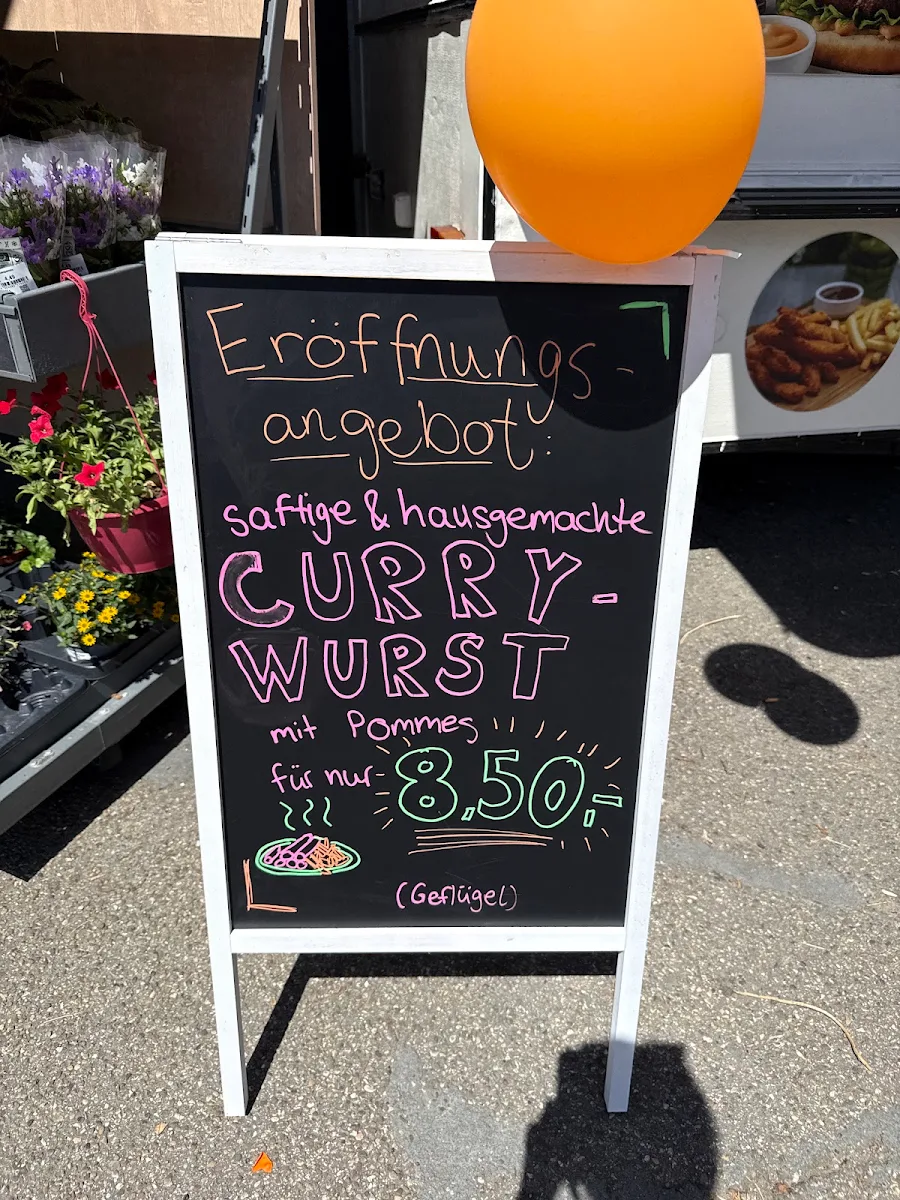 Eröffnungs-
angebot:
saftige & hausgemachte
CURRY-
WURST
mit Pommes
für nur 8,50,-
(Geflügel)